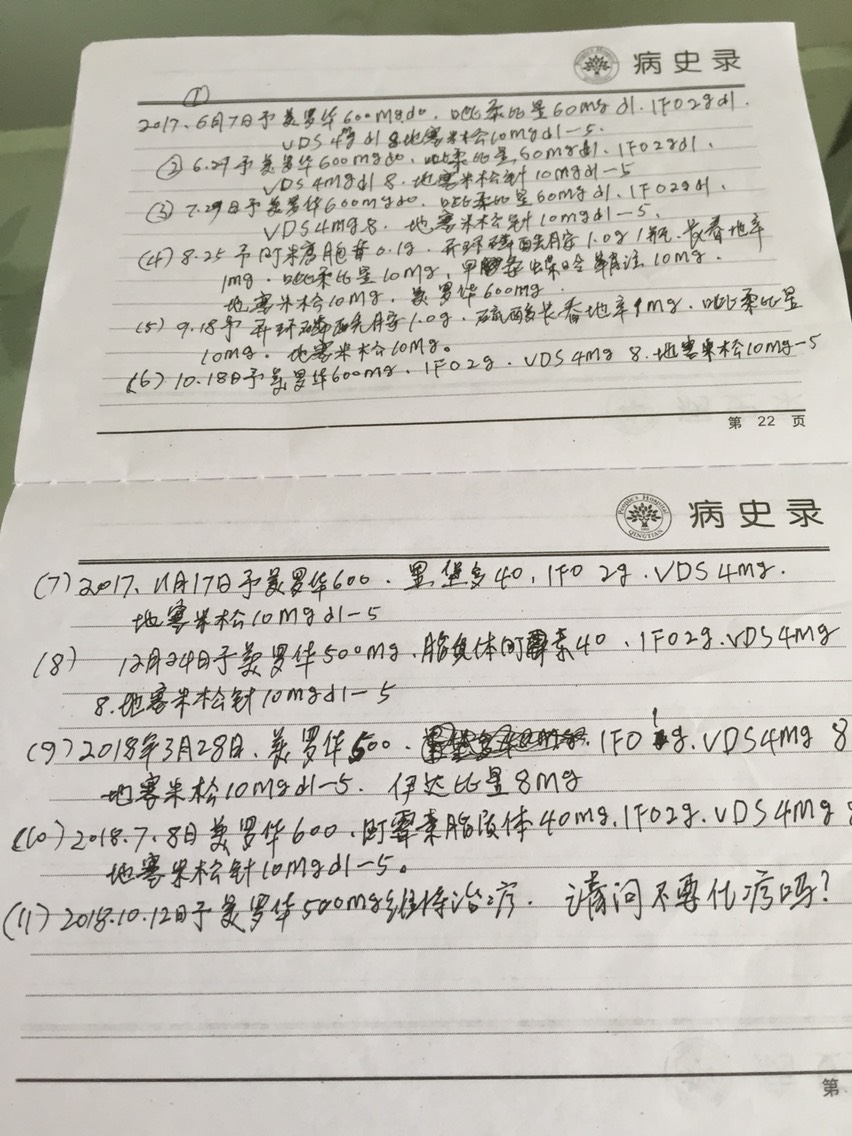 病史录
①
2017.6月7日予美罗华600mgd0.吡柔比星60mg d1.IFO2gd1.
VDS 4mg d1 8.地塞米松10mgd1-5.
② 6.29予美罗华600mgd0.吡柔比星60mgd1.IFO2gd1.
VDS4mgd1 8.地塞米松针10mgd1-5
③ 7.29日予美罗华600mgd0.吡柔比星60mg d1.IFO2gd1.
VDS4mg8.地塞米松针10mgd1-5.
(4) 8.25予阿糖胞苷0.1g.异环磷酰胺1.0g 1瓶.长春地辛
1mg.吡柔比星10mg,甲氨蝶呤 10mg.
地塞米松10mg.美罗华600mg.
(5) 9.18予异环磷酰胺1.0g.硫酸长春地辛1mg.吡柔比星
10mg.地塞米松10mg。
(6) 10.18日予美罗华600mg.IFO2g.VDS4mg 8.地塞米松10mg-5
第 22 页
People's Hospital QINGTIAN
病史录
(7) 2017.11月17日予美罗华600.里堡多40.IFO 2g.VDS4mg.
地塞米松10mgd1-5
(8) 12月24日予美罗华500mg.脂质体阿霉素40.IFO2g.VDS4mg
8.地塞米松针10mgd1-5
(9) 2018年3月28日.美罗华500.IFO 1g.VDS4mg 8
地塞米松10mgd1-5.伊达比星8mg
(10) 2018.7.8日美罗华600.阿霉素脂质体40mg.IFO2g.VDS4mg 8
地塞米松针10mgd1-5。
(11) 2018.10.12日予美罗华500mg维持治疗.请问不要化疗吗?
第